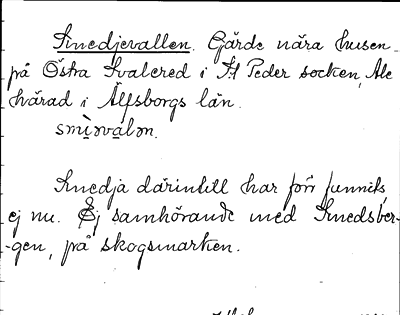 Smedjevallen. Gärde nära husen
på Östra Svalered i St Peder socken, Ale
härad i Älfsborgs län.
smìəvalən.
Smedja därintill har förr funnits,
ej nu. Ej samhörande med Smedsber-
-gen, på skogsmarken.